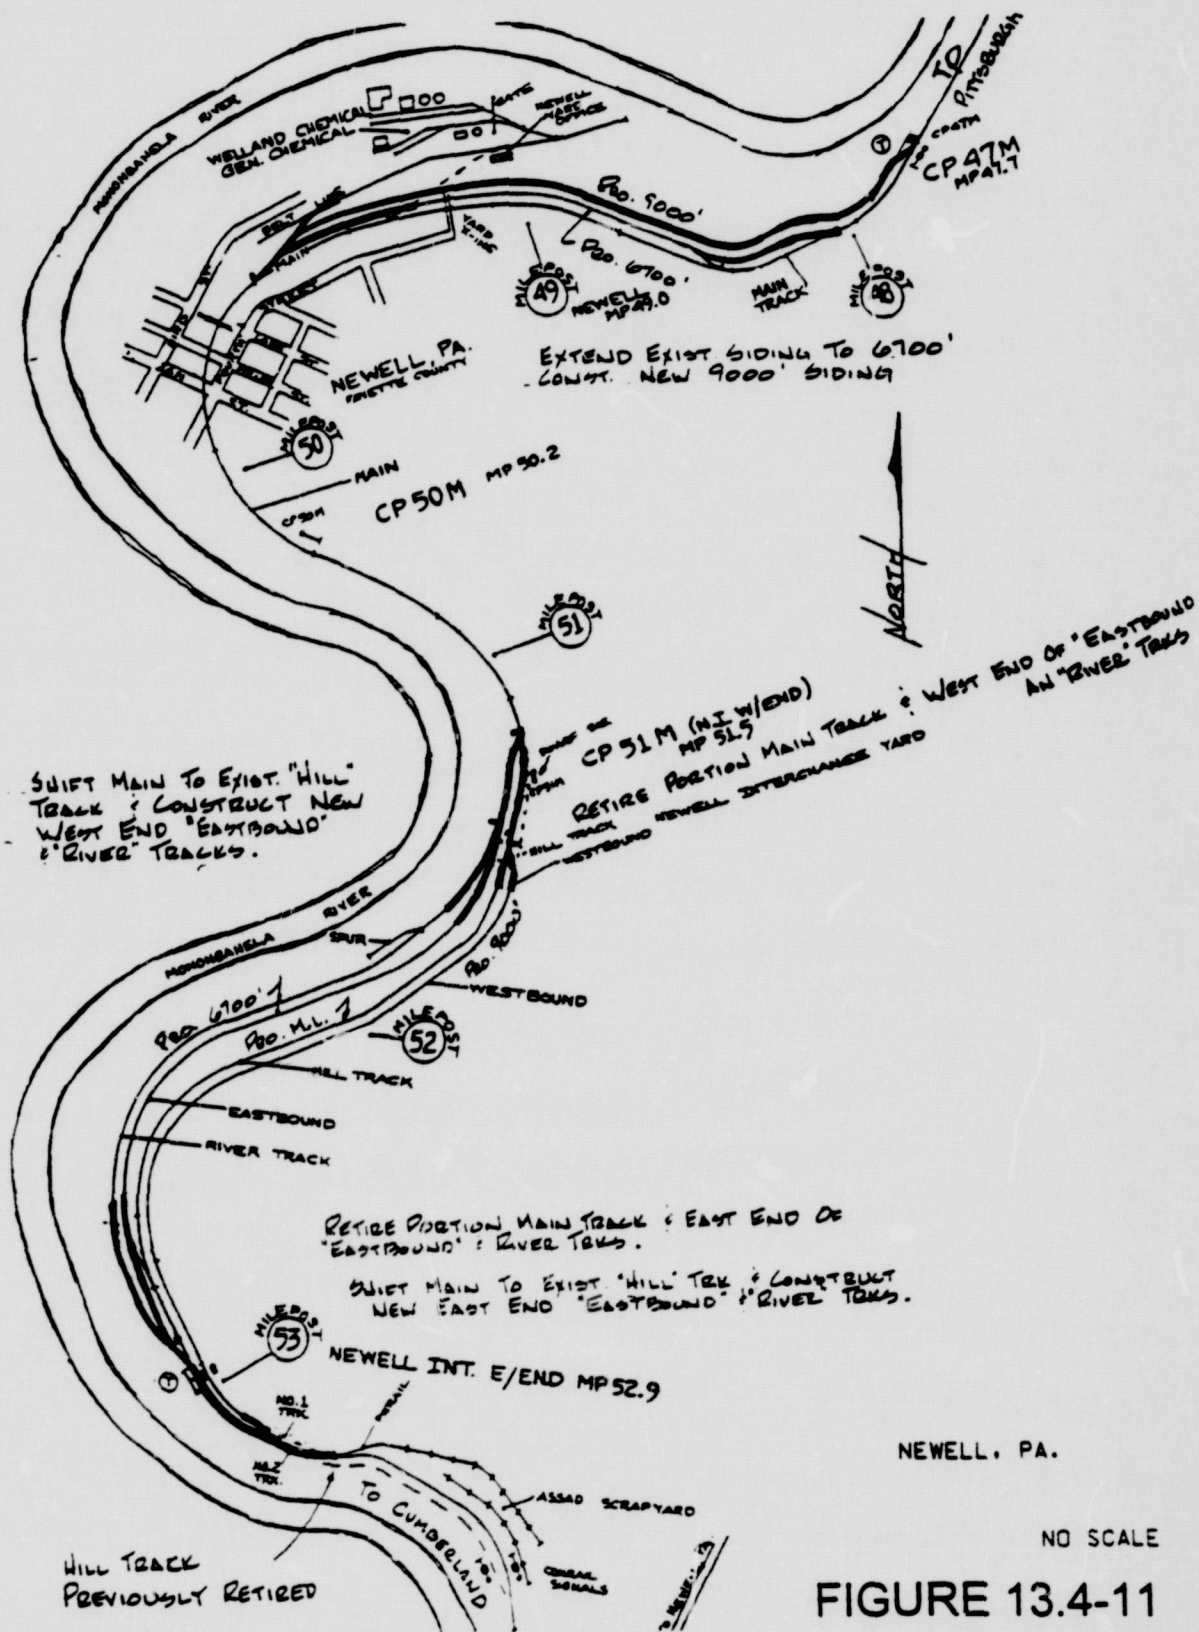 TO
PITTSBURGH
MONONGAHELA RIVER
WELLAND CHEMICAL
GEN. CHEMICAL
GATE
NEWELL
YARD
OFFICE
T
CP47M
CP 47M
MP 47.7
BELT LINE
MAIN
YARD
X-ING
PRO. 9000'
PRO. 6700'
MILEPOST
49
NEWELL
MP 49.0
MAIN
TRACK
MILEPOST
48
STREET
NEWELL, PA.
FAYETTE COUNTY
EXTEND EXIST. SIDING TO 6700'
CONST. NEW 9000' SIDING
ST.
ST.
MILEPOST
50
MAIN
CP50M
CP 50M MP 50.2
NORTH
MILEPOST
51
CP 51 M (N.I. W/END)
MP 51.5
RETIRE PORTION MAIN TRACK & WEST END OF "EASTBOUND
AN "RIVER" TRKS
HILL TRACK
WESTBOUND NEWELL INTERCHANGE YARD
SHIFT MAIN TO EXIST. "HILL"
TRACK & CONSTRUCT NEW
WEST END "EASTBOUND"
& "RIVER" TRACKS.
MONONGAHELA RIVER
SPUR
PRO. 9000'
WESTBOUND
PRO. 6700'
PRO. M.L.
MILEPOST
52
HILL TRACK
EASTBOUND
RIVER TRACK
RETIRE PORTION MAIN TRACK & EAST END OF
"EASTBOUND" & RIVER TRKS.
SHIFT MAIN TO EXIST. "HILL" TRK & CONSTRUCT
NEW EAST END "EASTBOUND" & "RIVER" TRKS.
MILEPOST
53
NEWELL INT. E/END MP 52.9
T
NO.1
TRK.
NO.2
TRK.
DERAIL
TO CUMBERLAND
ASSAD SCRAPYARD
CONRAIL
SIGNALS
HILL TRACK
PREVIOUSLY RETIRED
NEWELL, PA.
NO SCALE
FIGURE 13.4-11